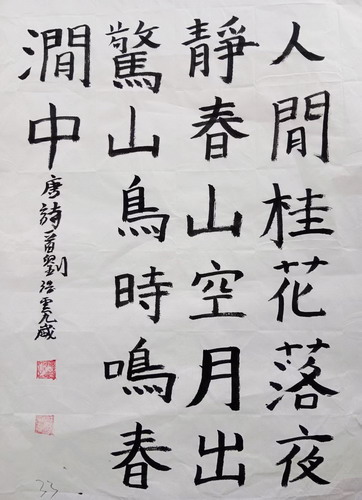 人閒桂花落夜
靜春山空月出
驚山鳥時鳴春
澗中
唐詩一首劉浩雲九歲
33